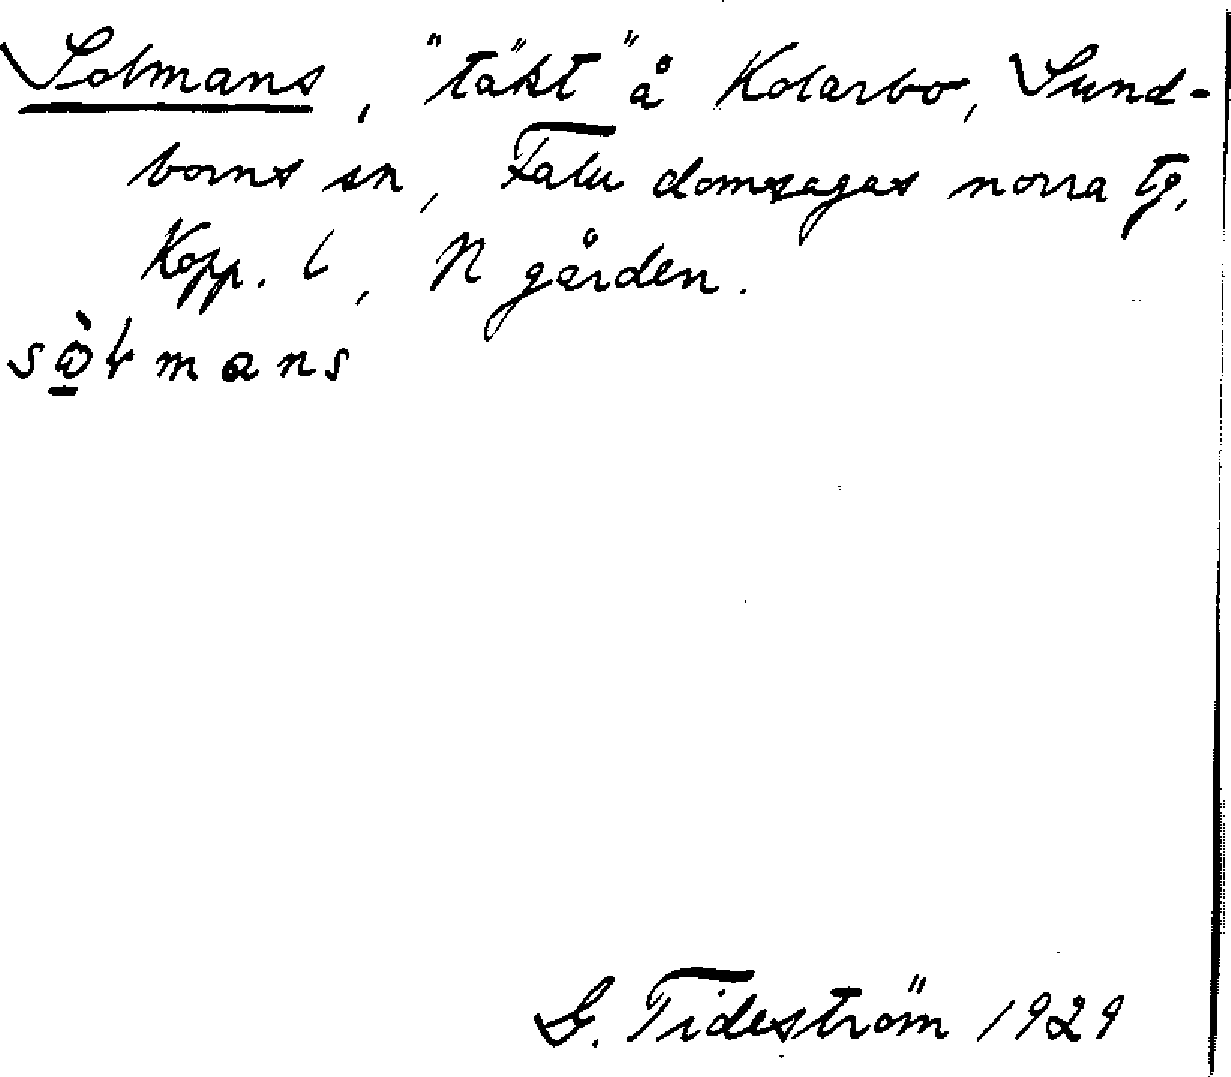 Solmans, "täkt" å Kolarbo, Sund-
borns sn, Falu domsagas norra tg,
Kopp. l, N gården.
sò̱ɫmans
G. Tideström 1929